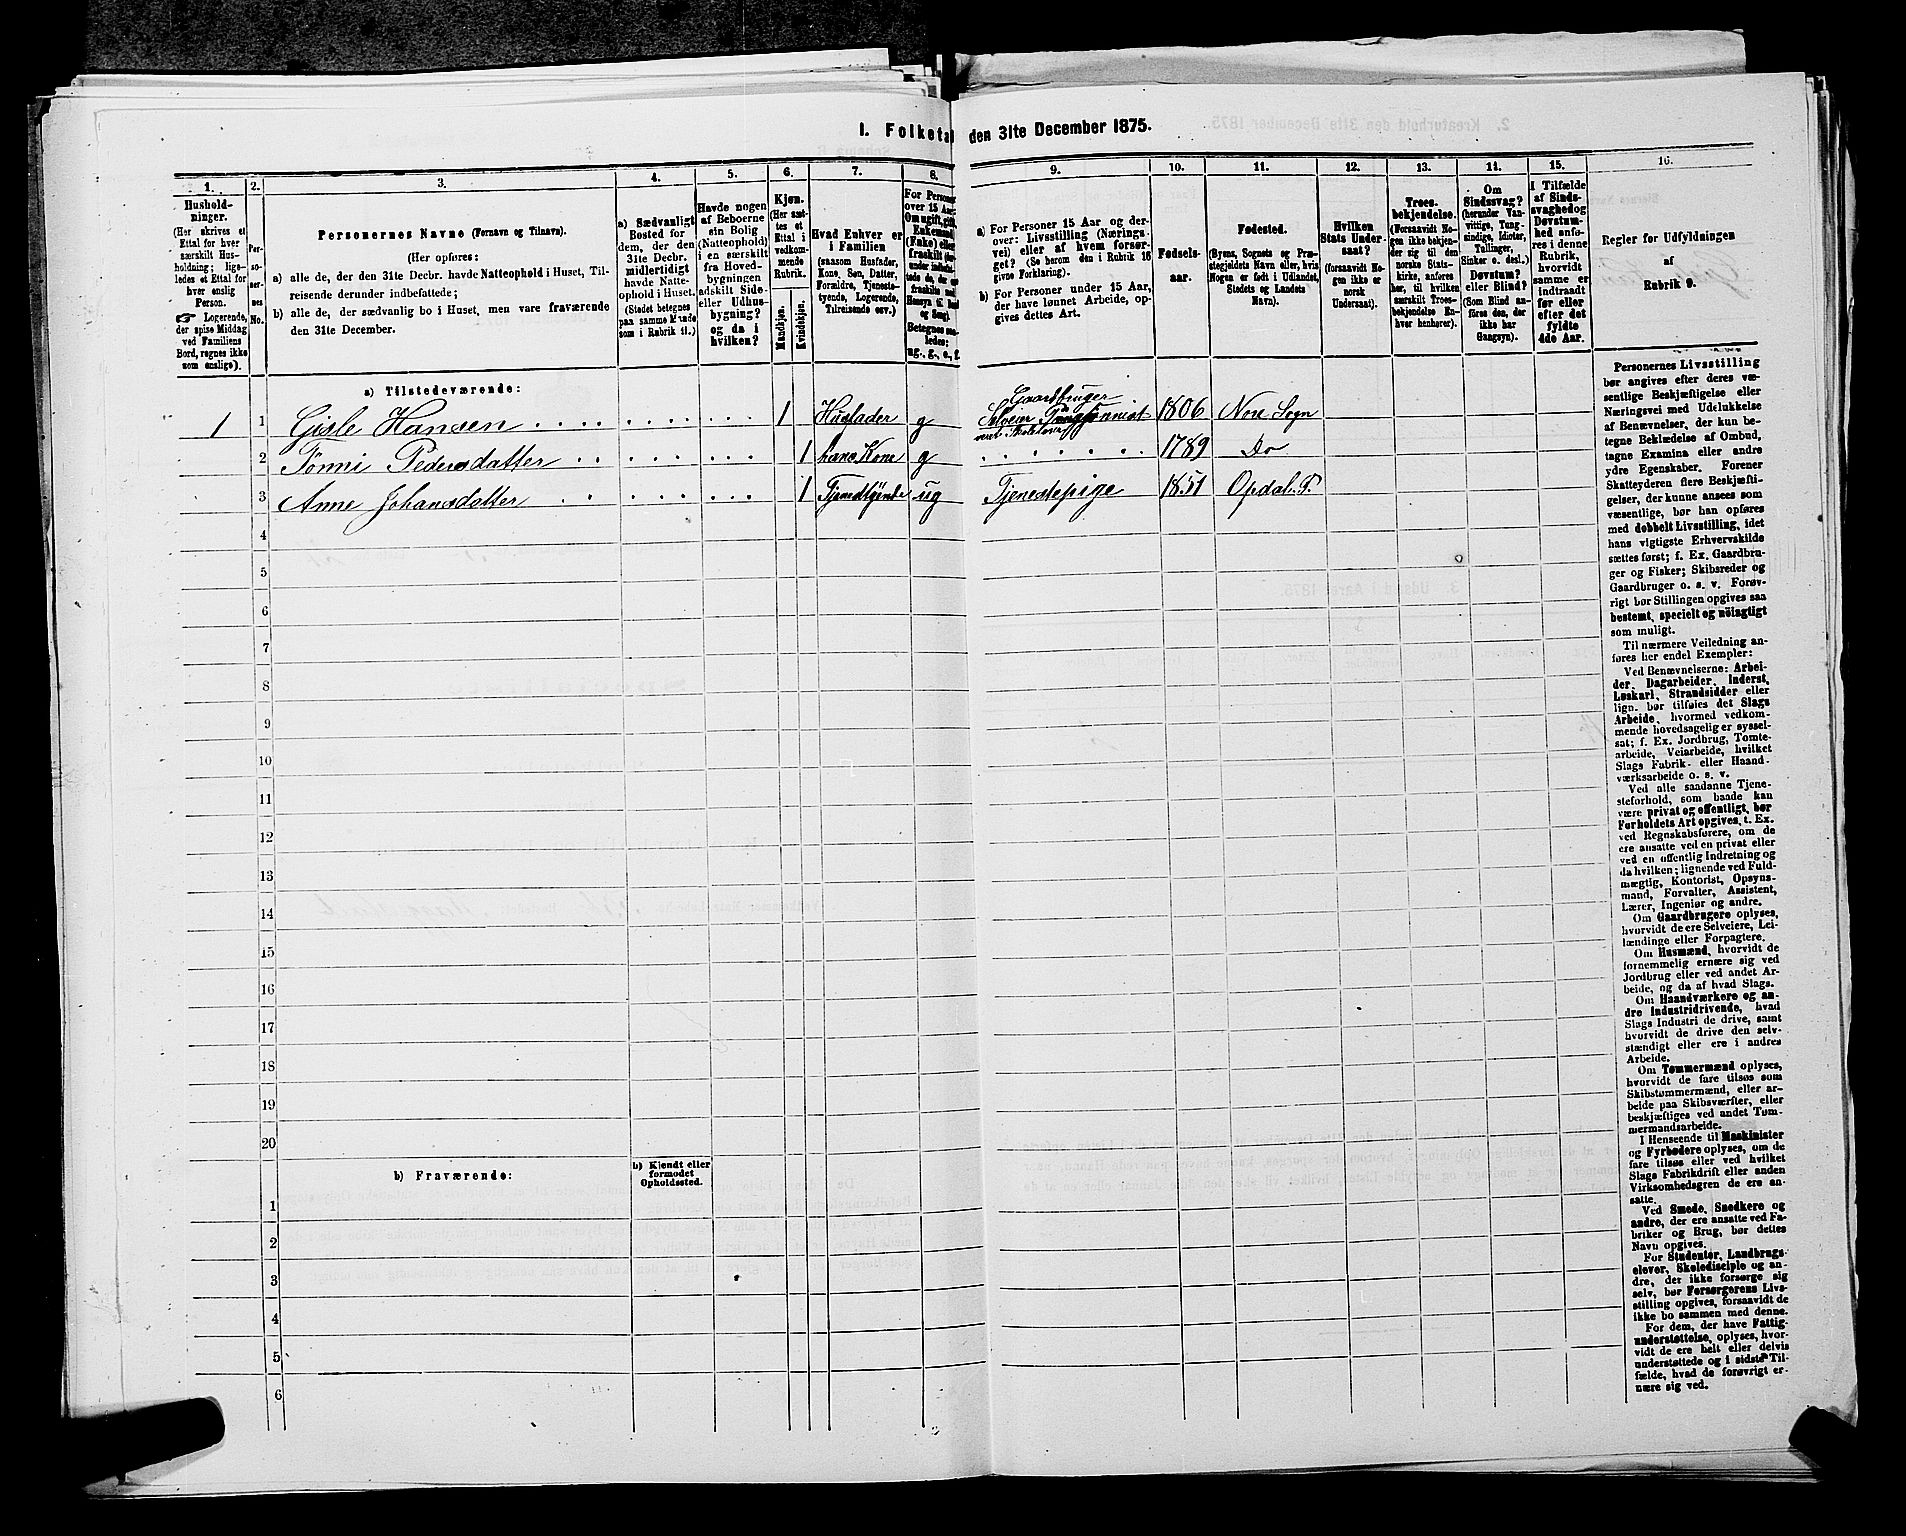 I. Folketal den 31te December 1875.
1.
2.
3.
4.
5.
6.
7.
8.
9.
10.
11.
12.
13.
14.
15.
16.
Husholdninger.
(Her skrives et
Ettal for hver
særskilt Husholdning;
ligeledes et Ettal for
hver enslig
Person.
☞ Logerende,
der spise Middag
ved Familiens
Bord, regnes ikke
som enslige).
Personernes No.
Personernes Navne (Fornavn og Tilnavn).
(Her opføres:
a) alle de, der den 31te Decbr. havde Natteophold i Huset, Tilreisende derunder indbefattede;
b) alle de, der sædvanlig bo i Huset, men vare fraværende
den 31te December.
a) Sædvanligt
Bosted for
dem, der den
31te Decbr.
midlertidigt
havde Natteophold
i Huset.
(Stedet betegnes
paa samme Maade
som i Rubrik 11.)
Havde nogen
af Beboerne
sin Bolig
(Natteophold)
i en særskilt
fra Hovedbygningen
adskilt Side-
eller Udhusbygning?
og da i
hvilken?
Kjøn.
(Her sættes
et
Ettal i
vedkommende
Rubrik.
Mandskjøn.
Kvindekjøn.
Hvad Enhver er
i Familien
(saasom Husfader,
Kone, Søn, Datter,
Forældre, Tjenestetyende,
Logerende,
Tilreisende osv.)
For Personer
over 15 Aar:
Om ugift, gift,
Enkemand
(Enke) eller
fraskilt
Betegnes saaledes:
ug., g., e., f.
a) For Personer 15 Aar og derover:
Livsstilling (Næringsvei)
eller af hvem forsørget?
(Se berom den i Rubrik 16
givne Forklaring).
b) For Personer under 15 Aar,
der have lønnet Arbeide, opgives
dettes Art.
Fødselsaar.
Fødested.
(Byens, Sognets og Præstegjeldets
Navn eller, hvis
Nogen er født i Udlandet,
Stedets og Landets
Navn).
Hvilken
Stats Undersaat?
(forsaavidt Nogen
ikke er
norsk
Undersaat).
Troesbekjendelse.
(Forsaavidt Nogen
ikke bekjender
sig til den
norske Statskirke,
anføres
her, til hvilken
særskilt Troesbekjendelse
Enhver
henhører).
Om
Sindssvag?
(herunder Vanvittige,
Tungsindige,
Idioter,
Tullinger,
Sinker o. desl.)
Døvstum?
eller Blind?
(Som Blind anføres
den, der
ikke har
Gangsyn).
I Tilfælde
af Sindssvaghed
og
Døvstumhed
anføres
i denne
Rubrik,
hvorvidt
samme er
indtraadt
før eller
efter det
fyldte
4de Aar.
Regler for Udfyldningen
af
Rubrik 9.
a) Tilstedeværende:
1 1 Gisle Hansen 1 Husfader g Gaardbruger Selveier 1806 Nore Sogn
2 Tønni Pedersdatter 1 hans Kone g 1789 Do
3 Anne Johansdatter 1 Tjenesttyende ug Tjenestepige 1851 Opdal S.
4
5
6
7
8
9
10
11
12
13
14
15
16
17
18
19
20
b) Fraværende:
b) Kjendt eller
formodet
Opholdssted.
1
2
3
4
5
6
Personernes Livsstilling
bør angives efter deres væsentlige
Beskjæftigelse eller
Næringsvei med Udelukkelse
af Benævnelser, der kun betegne
Beklædelse af Ombud,
tagne Examina eller andre
ydre Egenskaber. Forener
Skatteyderen flere Beskjæftigelser,
der kunne ansees som
væsentlige, bør han opføres
med dobbelt Livsstilling, idet
hans vigtigste Erhvervskilde
sættes først; f. Ex. Gaardbruger
og Fisker; Skibsreder og
Gaardbruger o. s. v. Forøvrigt
bør Stillingen opgives saa
bestemt, specielt og nöiagtigt
som muligt.
Til nærmere Veiledning anføres
her endel Exempler:
Ved Benævnelserne: Arbeider,
Dagarbeider, Inderst,
Løskarl, Strandsidder eller
lign. bør tilføies det Slags
Arbeide, hvormed vedkommende
hovedsagelig er sysselsat;
f. Ex. Jordbrug, Tomtearbeide,
Veiarbeide, hvilket
Slags Fabrik- eller Haandværksarbeide
o. s. v.
Ved alle saadanne Tjenesteforhold,
som baade kan
være privat og offentligt, bør
Forholdets Art opgives, t. Ex.
ved Regnskabsførere, om de
ere ansatte ved en privat eller
ved en offentlig Indretning og
da hvilken; lignende ved Fuldmægtig,
Kontorist, Opsynsmand,
Forvalter, Assistent,
Lærer, Ingeniør og andre.
Om Gaardbrugere oplyses,
hvorvidt de ere Selveiere, Leilændinge
eller Forpagtere.
Om Husmænd, hvorvidt de
fornemmelig ernære sig ved
Jordbrug eller ved andet Arbeide,
og da af hvad Slags.
Om Haandværkere og andre
Industridrivende, hvad
Slags Industri de drive, samt
hvorvidt de drive den selvstændigt
eller ere i andres
Arbeide.
Om Tømmermænd oplyses,
hvorvidt de fare tilsøs som
Skibstømmermænd, eller arbeide
paa Skibsværfter, eller
beskjæftiges ved andet Tømmermandsarbeide.
I Henseende til Maskinister
og Fyrbødere oplyses, om de
fare tilsøs eller ved hvilket
Slags Fabrikdrift eller anden
Virksomhedsgren de ere ansatte.
Ved Smede, Snedkere og
andre, der ere ansatte ved Fabriker
og Brug, bør dettes
Navn opgives.
For Studenter, Landbrugselever,
Skoledisciple og andre,
der ikke forsørge sig
selv, bør Forsørgerens Livsstilling
opgives, forsaavidt de
ikke bo sammen med denne.
For dem, der have Fattigunderstøttelse,
oplyses, hvorvidt
de ere helt eller delvis
understøttede og i sidste Tilfælde,
hvad de forøvrigt ernære
sig ved.